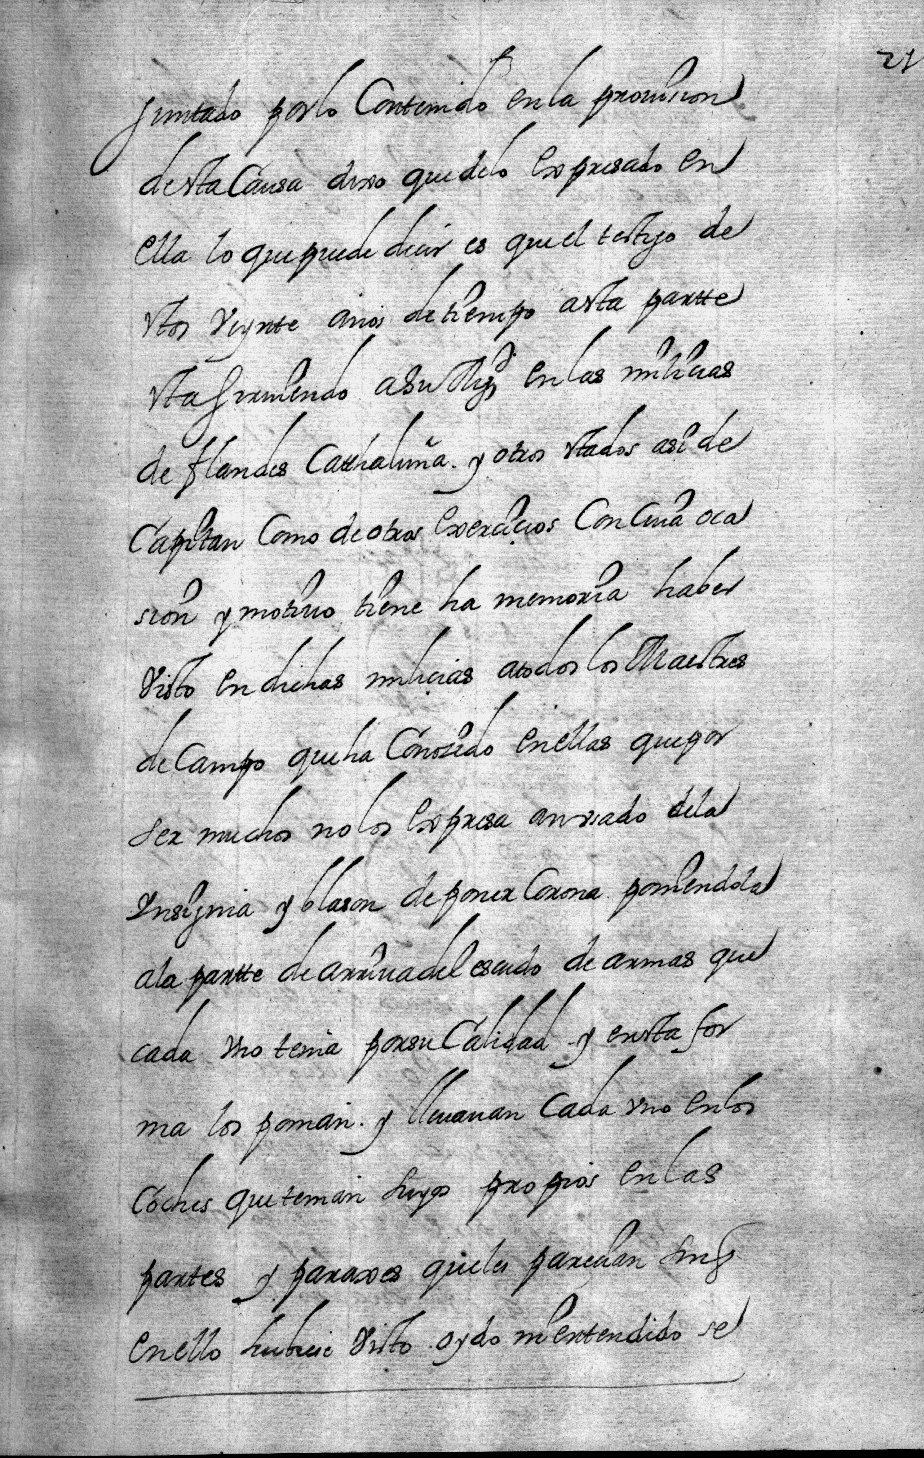 21
guntado por lo Contenido en la prouission
desta Causa dixo que delo Expresado en
ella lo que puede decir es que el testigo de
stos Veynte años de tiempo a esta partte
sta siruiendo a Su Mgd en las milicias
de flandes Catthaluña. y otros stados asi de
Capitan Como de otros Exercicios Con Cuia oca
sion y motiuo tiene ha memoria haber
Visto en dichas milicias a todos los Maestres
de Campo que ha Conozido en ellas que por
Ser muchos no los Expresa an vsado dela
Ynsignia y blason de poner Corona poniendola
ala partte de arriua del escudo de armas que
cada vno tenia por su Calidad y en esta for
ma los ponian. y lleuauan Cada vno en los
Coches que tenian Suyos propios en las
partes y paraxes que les parecian Sin q
en ello hubiese Visto oydo ni entendido se